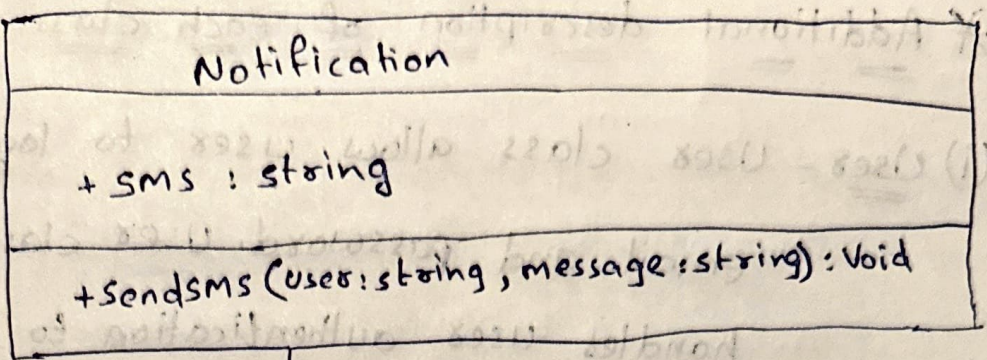 Notification
+ SMS : string
+sendsms (user: string, message: string) : Void